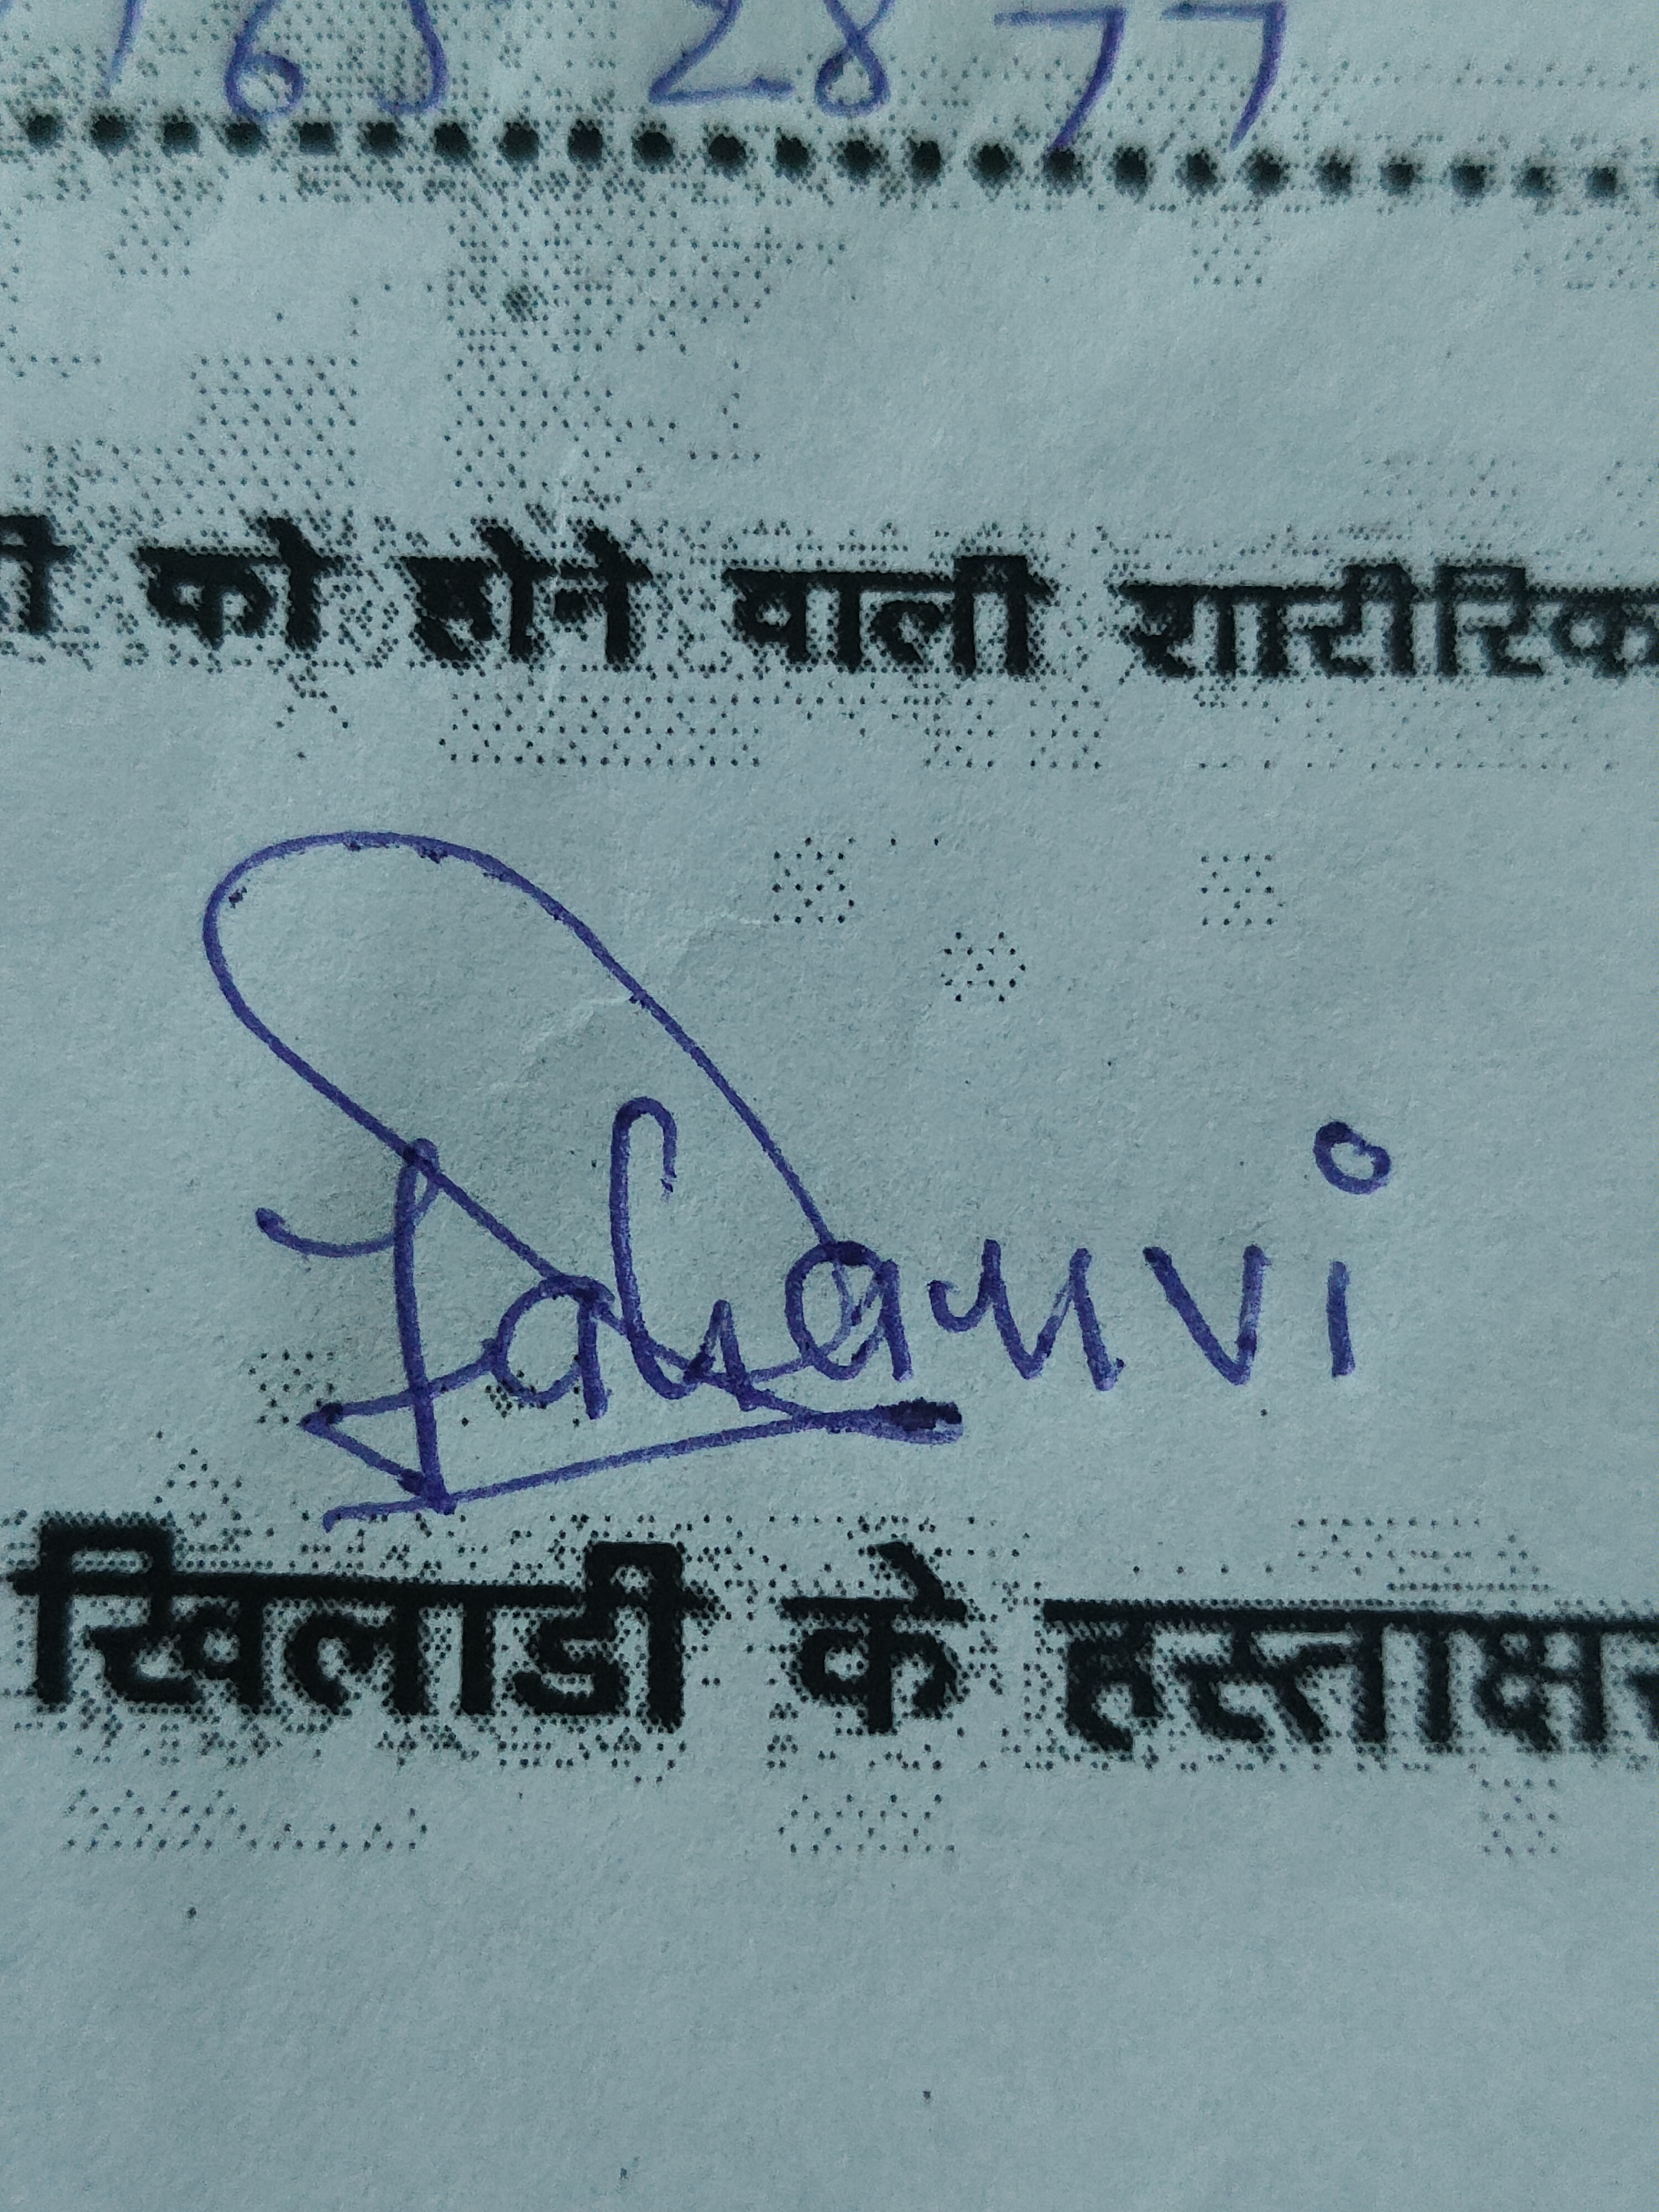 165 2877
को होने वाली शारीरिक
Jahanvi
खिलाडी के हस्ताक्षर